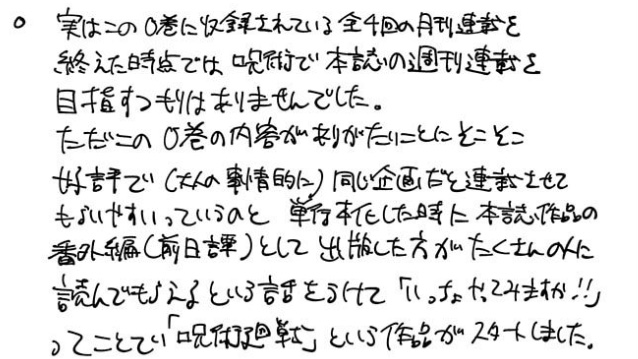 ○ 実はこの0巻に収録されている全4回の月刊連載を
終えた時点では呪術で本誌の週刊連載を
目指すつもりはありませんでした。
ただこの0巻の内容がありがたいことにそこそこ
好評で(大人の事情的に)同じ企画だと連載させて
もらいやすいっていうのと単行本化した時に本誌作品の
番外編(前日譚)として出版した方がたくさんの人に
読んでもらえるという話をうけて「いっちょやってみますか!!」
ってことで「呪術廻戦」という作品がスタートしました。